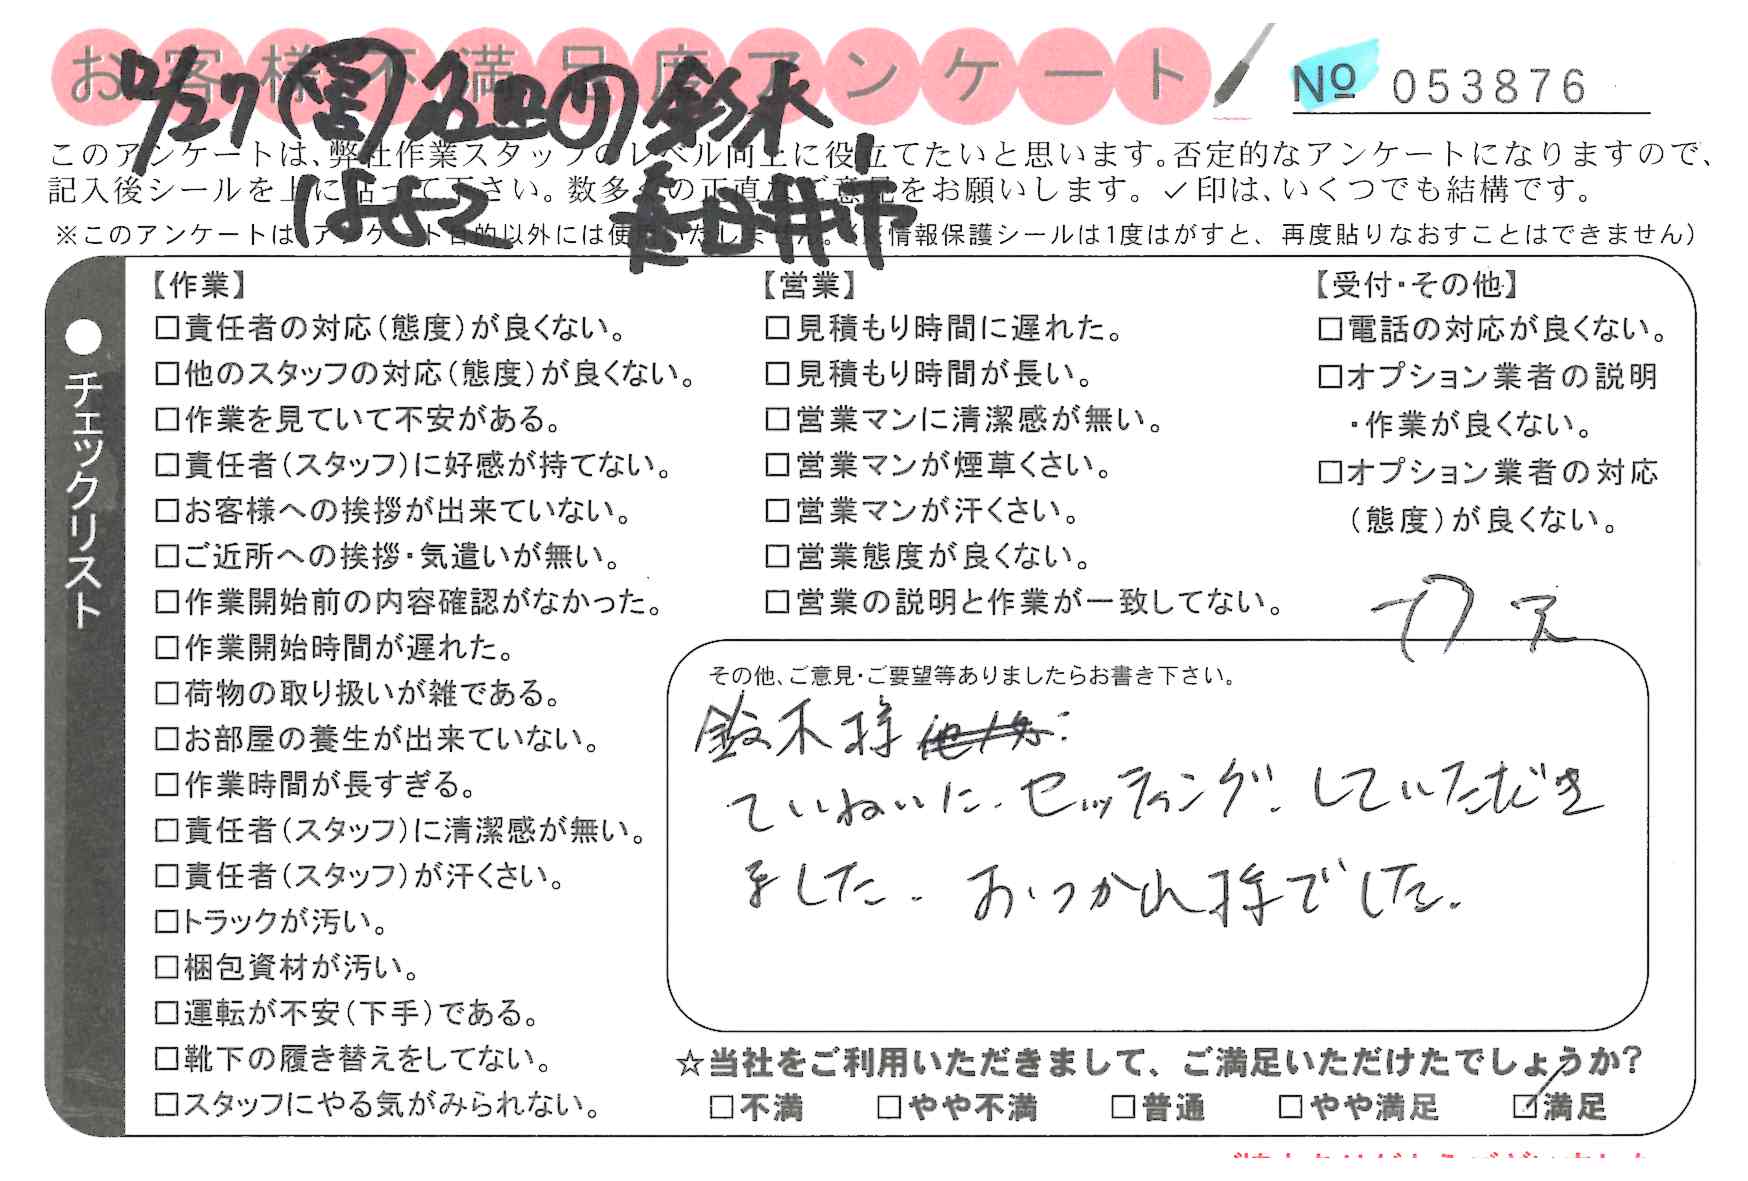 お客様不満足度アンケート
№ 053876
12/27 鈴木
このアンケートは、弊社作業スタッフのレベル向上に役立てたいと思います。否定的なアンケートになりますので、
記入後シールを上に貼って下さい。数多くの正直なご意見をお願いします。✓印は、いくつでも結構です。
春日井市
※このアンケートは、アンケート目的以外には使用いたしません。(※情報保護シールは1度はがすと、再度貼りなおすことはできません)
●チェックリスト
【作業】
□責任者の対応(態度)が良くない。
□他のスタッフの対応(態度)が良くない。
□作業を見ていて不安がある。
□責任者(スタッフ)に好感が持てない。
□お客様への挨拶が出来ていない。
□ご近所への挨拶・気遣いが無い。
□作業開始前の内容確認がなかった。
□作業開始時間が遅れた。
□荷物の取り扱いが雑である。
□お部屋の養生が出来ていない。
□作業時間が長すぎる。
□責任者(スタッフ)に清潔感が無い。
□責任者(スタッフ)が汗くさい。
□トラックが汚い。
□梱包資材が汚い。
□運転が不安(下手)である。
□靴下の履き替えをしてない。
□スタッフにやる気がみられない。
【営業】
□見積もり時間に遅れた。
□見積もり時間が長い。
□営業マンに清潔感が無い。
□営業マンが煙草くさい。
□営業マンが汗くさい。
□営業態度が良くない。
□営業の説明と作業が一致してない。
【受付・その他】
□電話の対応が良くない。
□オプション業者の説明
・作業が良くない。
□オプション業者の対応
(態度)が良くない。
その他、ご意見・ご要望等ありましたらお書き下さい。
鈴木様
ていねいに、セッティング、していただき
ました。おつかれ様でした。
☆当社をご利用いただきまして、ご満足いただけたでしょうか?
□不満 □やや不満 □普通 □やや満足 ☑満足